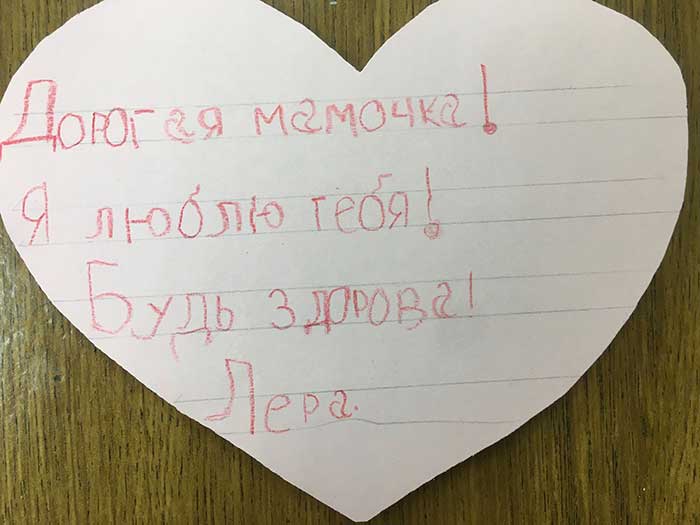 Дорогая мамочка!
Я люблю тебя!
Будь здорова!
Лера.